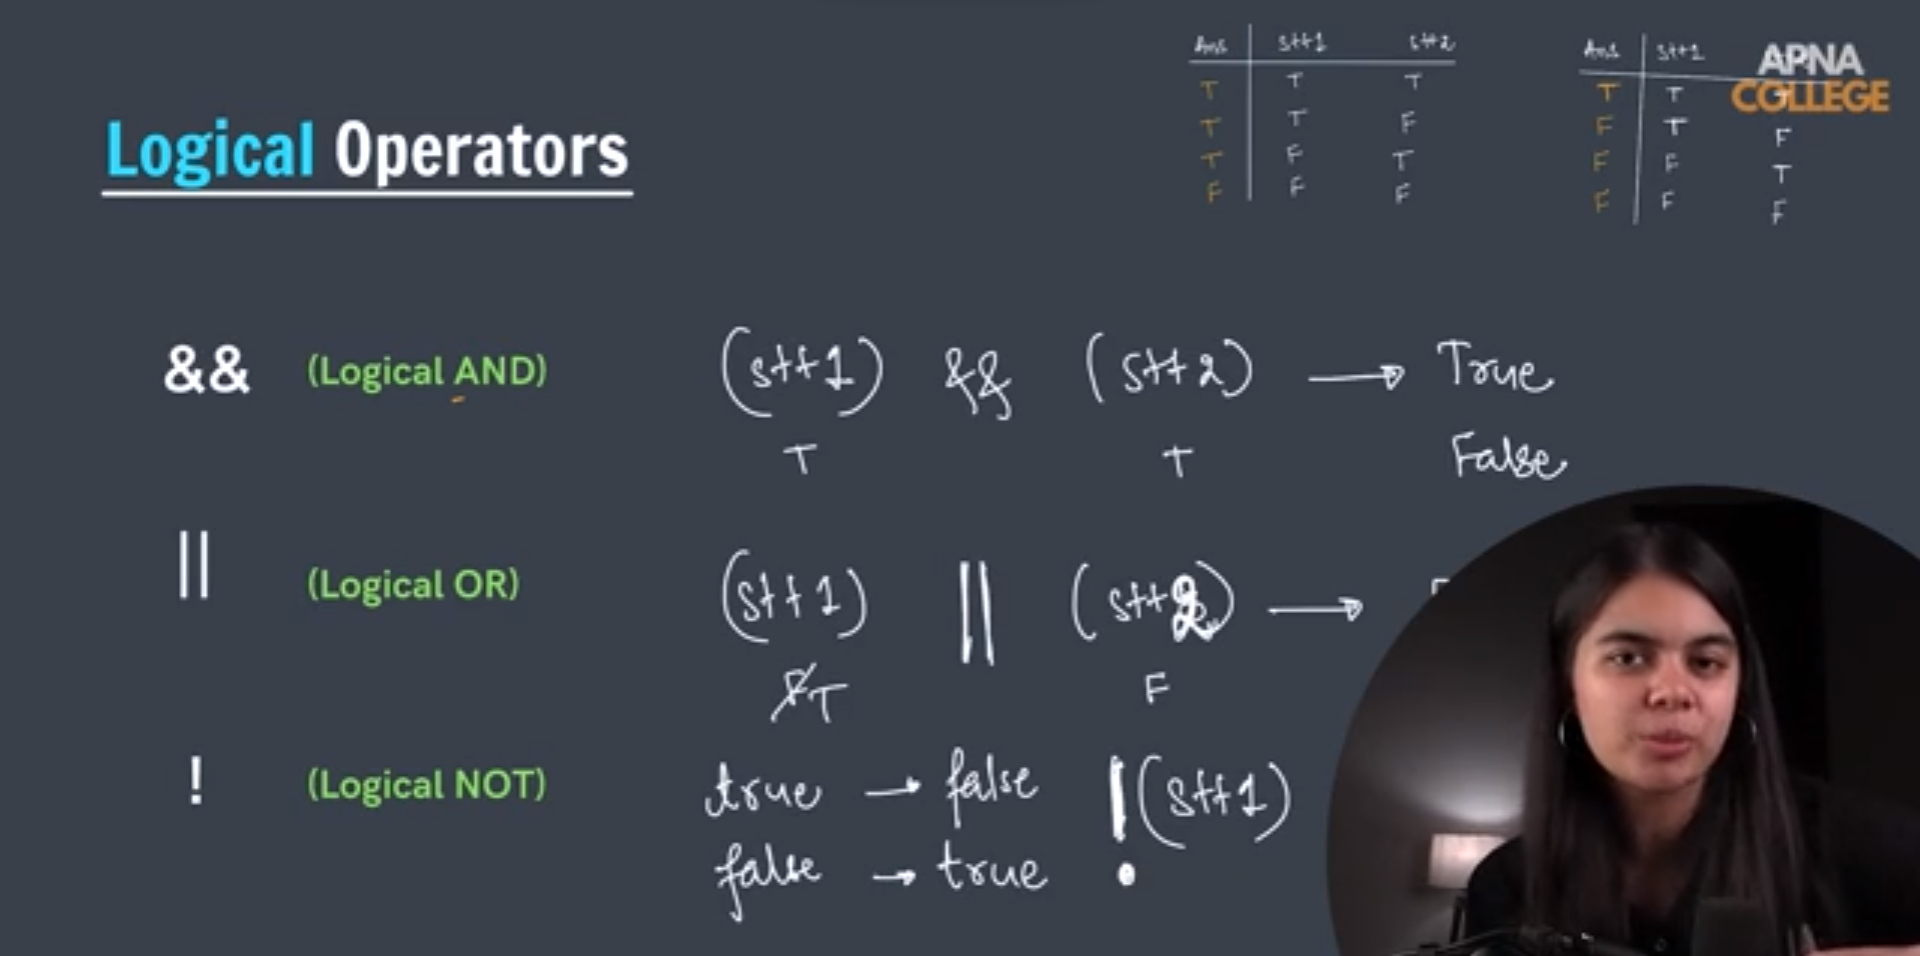 Logical Operators
Ans stt1 stt2
T T T
T T F
T F T
F F F
Ans stt1
T T T
F T F
F F T
F F F
APNA
COLLEGE
&& (Logical AND) (stt1) && (stt2) → True
T T False
|| (Logical OR) (stt1) || (stt2) →
T F
! (Logical NOT) true → false !(stt1)
false → true